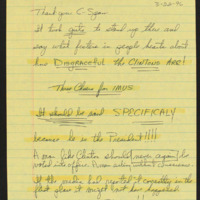 3-22-96
Thank you C-Span
It took guts to stand up there and
say what fellow in people hearts about
how Disgraceful the Clintons Are!
Three Cheers for IMUS
It should be said SPECIFICALY
because he is the President!!!!
A man like Clinton should never again be
voted into office.
If the media had printed it correctly in the
first place it might not have happened